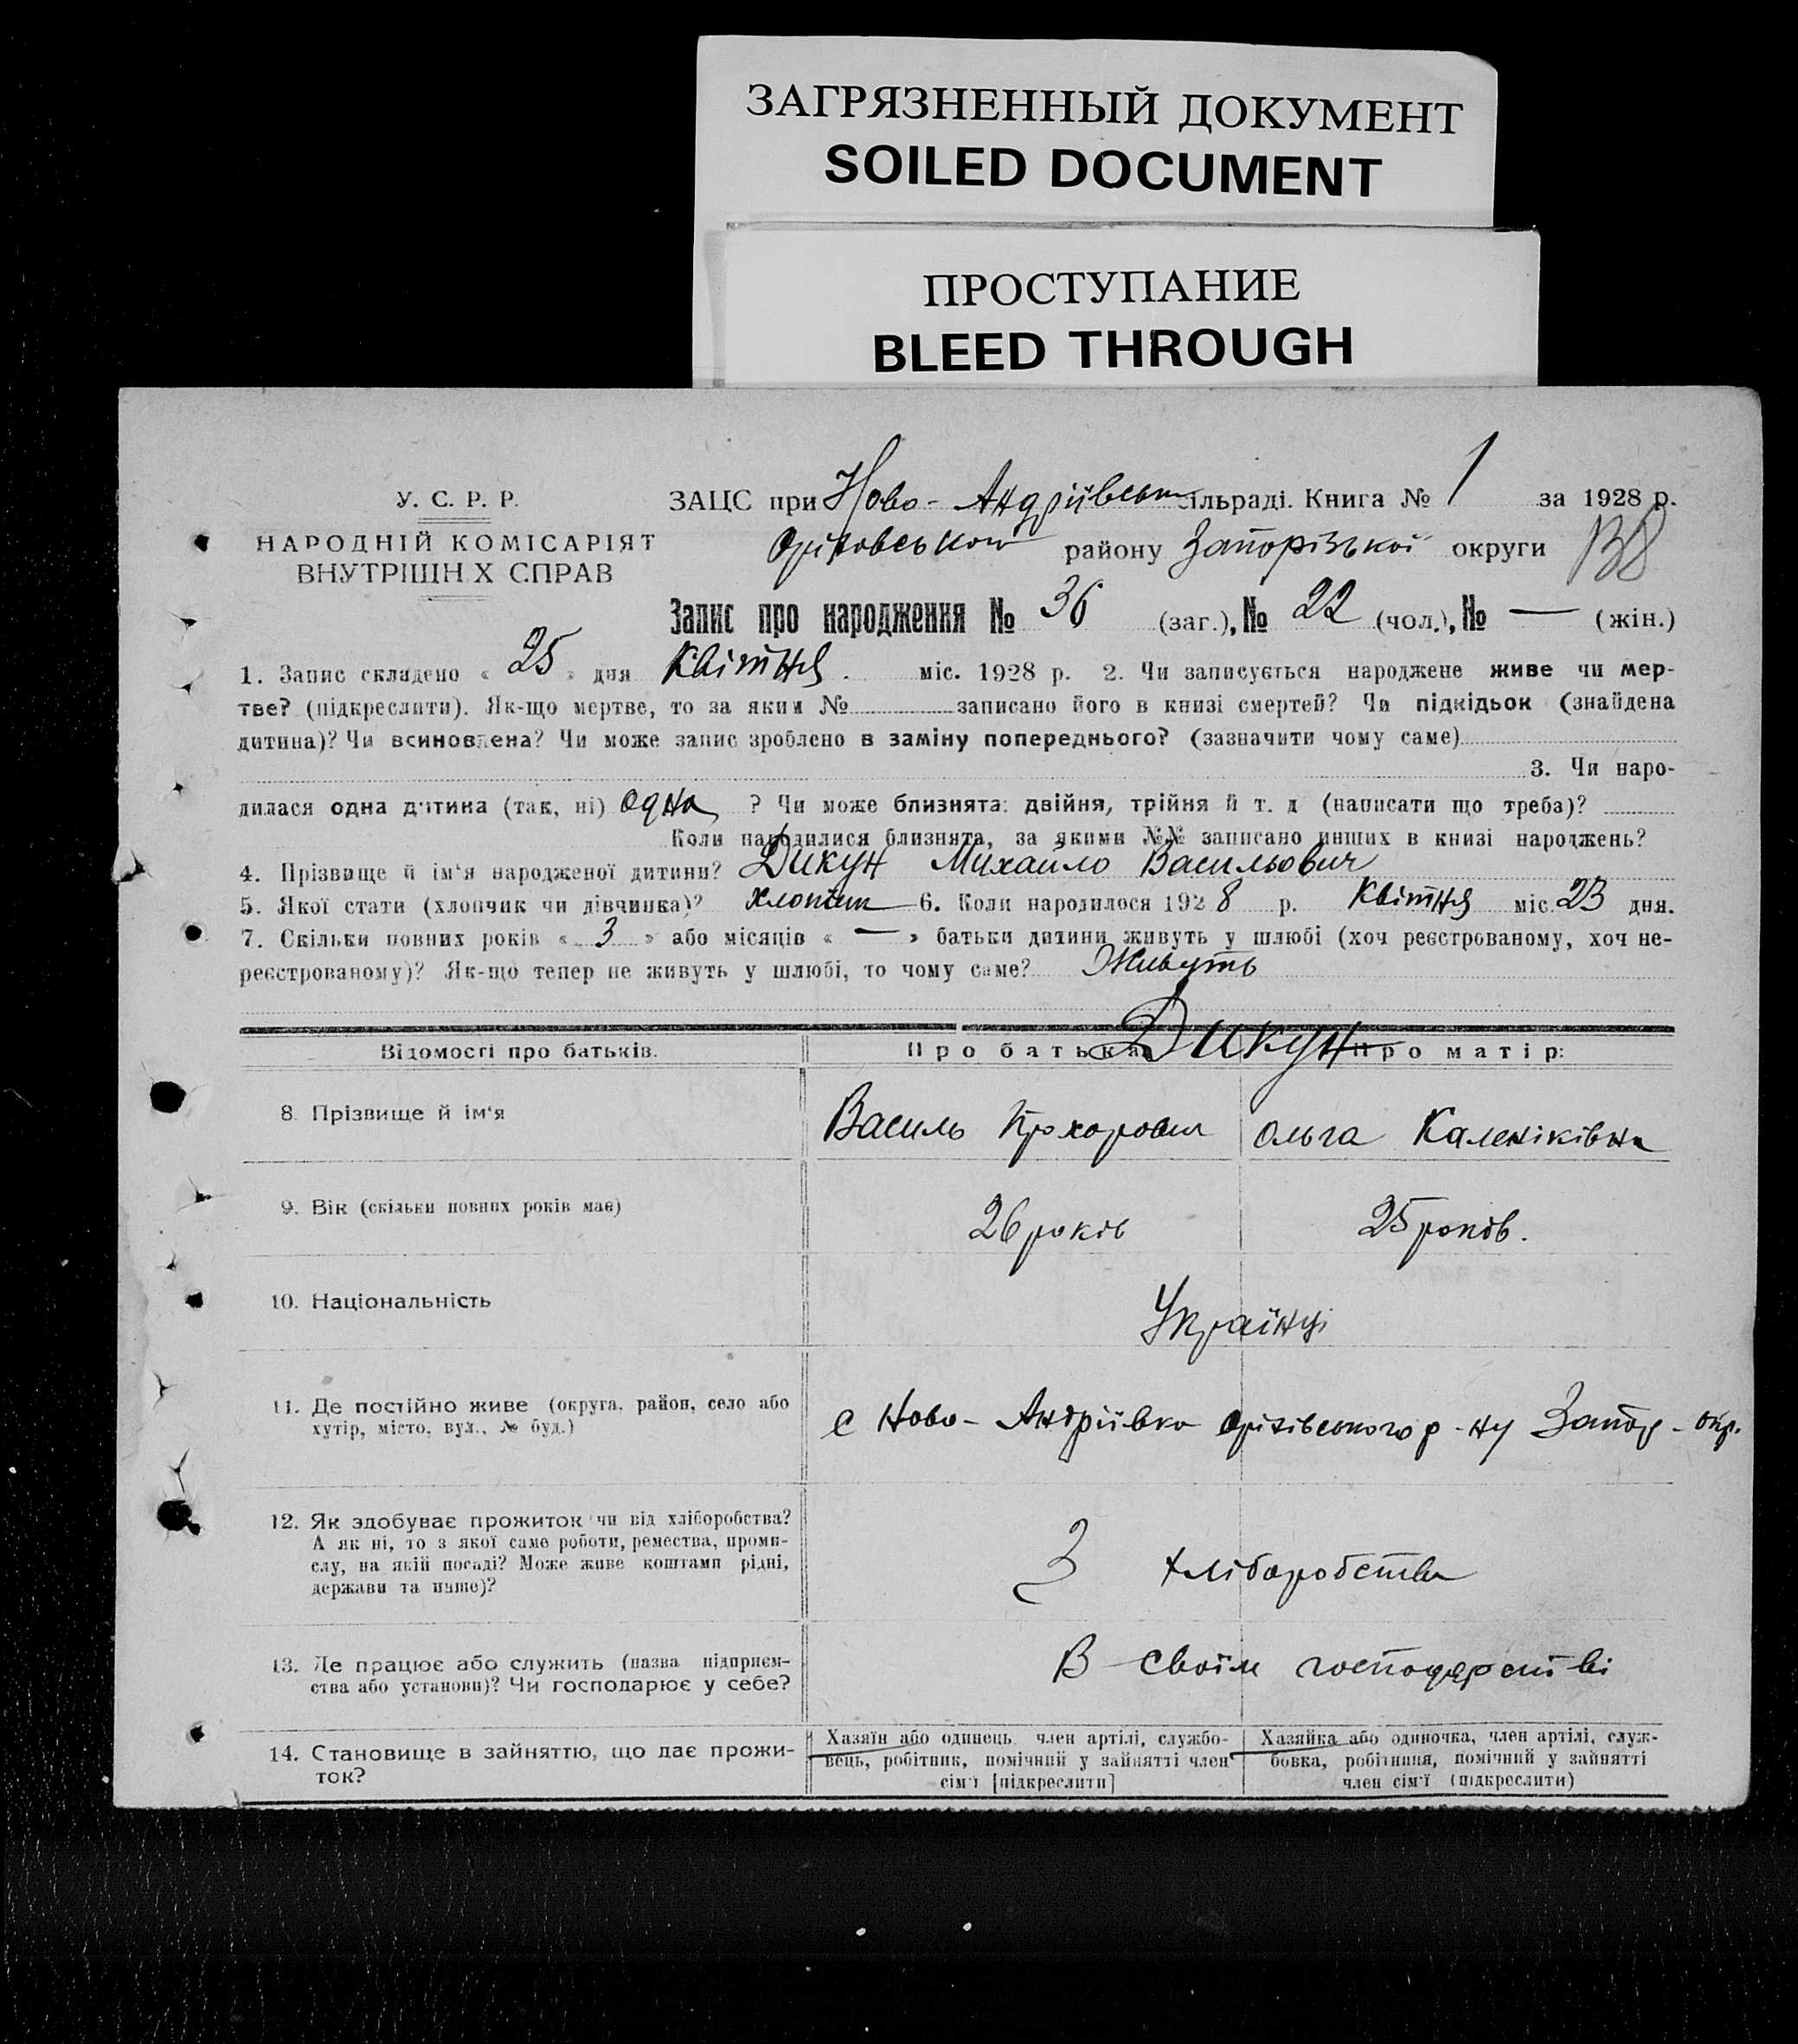 ЗАГРЯЗНЕННЫЙ ДОКУМЕНТ
SOILED DOCUMENT
ПРОСТУПАНИЕ
BLEED THROUGH
У. С. Р. Р.
НАРОДНІЙ КОМІСАРІЯТ
ВНУТРІШН Х СПРАВ
ЗАЦС при Ново-Андріївськ ільраді. Книга № 1 за 1928 р.
району Запорізької округи
Запис про народження № 36 (заг.), № 22 (чол.), № — (жін.)
1. Запис складено « 25 » дня Квітня. міс. 1928 р. 2. Чи записується народжене живе чи мер-
тве? (підкреслити). Як-що мертве, то за яким № записано його в книзі смертей? Чи підкідьок (знайдена
дитина)? Чи всиновлена? Чи може запис зроблено в заміну попереднього? (зазначити чому саме)
3. Чи наро-
дилася одна дитина (так, ні) Одна ? Чи може близнята: двійня, трійня й т. д (написати що треба)?
Коли народилися близнята, за якими №№ записано инших в книзі народжень?
4. Прізвище й ім'я народженої дитини? Дикун Михайло Васильович
5. Якої стати (хлопчик чи дівчинка)? 6. Коли народилося 1928 р. Квітня міс. 23 дня.
7. Скільки повних років « 3 » або місяців « — » батьки дитини живуть у шлюбі (хоч реєстрованому, хоч не-
реєстрованому)? Як-що тепер не живуть у шлюбі, то чому саме? Живуть
Відомості про батьків. Про батька: Дикун Про матір:
8. Прізвище й ім'я Василь Прохорович Ольга Каленіківна
9. Вік (скільки повних років має) 26 років 25 років.
10. Національність Українці
11. Де постійно живе (округа, район, село або
хутір, місто, вул., № буд.)
с Ново-Андріївка Оріхівського р-ну Запор-окр.
12. Як здобуває прожиток чи від хліборобства?
А як ні, то з якої саме роботи, ремества, проми-
слу, на якій посаді? Може живе коштами рідні,
держави та инше)?
З хліборобства
13. Де працює або служить (назва підприєм-
ства або установи)? Чи господарює у себе?
В своїм господарстві
14. Становище в зайняттю, що дає прожи-
ток?
Хазяїн або одинець член артілі, службо-
вець, робітник, помічний у зайнятті член
сім'ї [підкреслити]
Хазяйка або одиночка, член артілі, служ-
бовка, робітниця, помічний у зайнятті
член сім'ї (підкреслити)